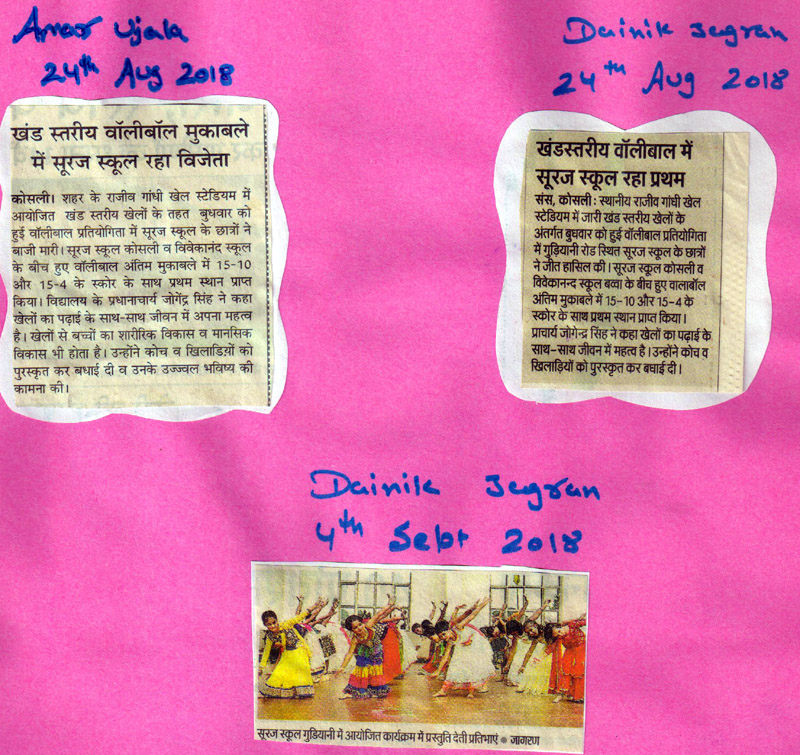 Amar Ujala
24th Aug 2018
खंड स्तरीय वॉलीबॉल मुकाबले
में सूरज स्कूल रहा विजेता
कोसली। शहर के राजीव गांधी खेल स्टेडियम में
आयोजित खंड स्तरीय खेलों के तहत बुधवार को
हुई वॉलीबाल प्रतियोगिता में सूरज स्कूल के छात्रों ने
बाजी मारी। सूरज स्कूल कोसली व विवेकानंद स्कूल
के बीच हुए वॉलीबाल अंतिम मुकाबले में 15-10
और 15-4 के स्कोर के साथ प्रथम स्थान प्राप्त
किया। विद्यालय के प्रधानाचार्य जोगेंद्र सिंह ने कहा
खेलों का पढ़ाई के साथ-साथ जीवन में अपना महत्व
है। खेलों से बच्चों का शारीरिक विकास व मानसिक
विकास भी होता है। उन्होंने कोच व खिलाडिय़ों को
पुरस्कृत कर बधाई दी व उनके उज्ज्वल भविष्य की
कामना की।
Dainik Jagran
24th Aug 2018
खंडस्तरीय वॉलीबाल में
सूरज स्कूल रहा प्रथम
संस, कोसली : स्थानीय राजीव गांधी खेल
स्टेडियम में जारी खंड स्तरीय खेलों के
अंतर्गत बुधवार को हुई वॉलीबाल प्रतियोगिता
में गुड़ियानी रोड स्थित सूरज स्कूल के छात्रों
ने जीत हासिल की। सूरज स्कूल कोसली व
विवेकानन्द स्कूल बव्वा के बीच हुए वालाबॉल
अंतिम मुकाबले में 15-10 और 15-4 के
स्कोर के साथ प्रथम स्थान प्राप्त किया।
प्राचार्य जोगेन्द्र सिंह ने कहा खेलों का पढ़ाई के
साथ-साथ जीवन में महत्व है। उन्होंने कोच व
खिलाड़ियों को पुरस्कृत कर बधाई दी।
Dainik Jagran
4th Sept 2018
सूरज स्कूल गुडियानी में आयोजित कार्यक्रम में प्रस्तुति देती प्रतिभाएं ● जागरण